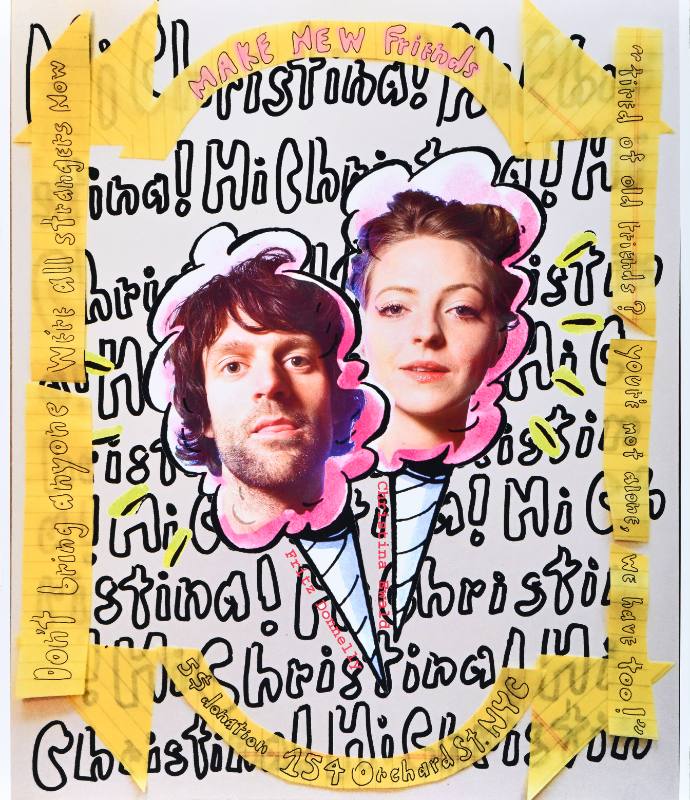 MAKE NEW Friends
Don't bring anyone We're all strangers Now
"Tired of old friends? you're not alone, we have too!"
Hi Christina! Hi
ina! Hi Christina! H
Christina
Hi Christina! Hi C
istina! Hi Christin
Hi Christina! Hi
Christina! Hi Christin
Fritz Donnelly
Christina Ewald
5$ donation 154 Orchard St. NYC